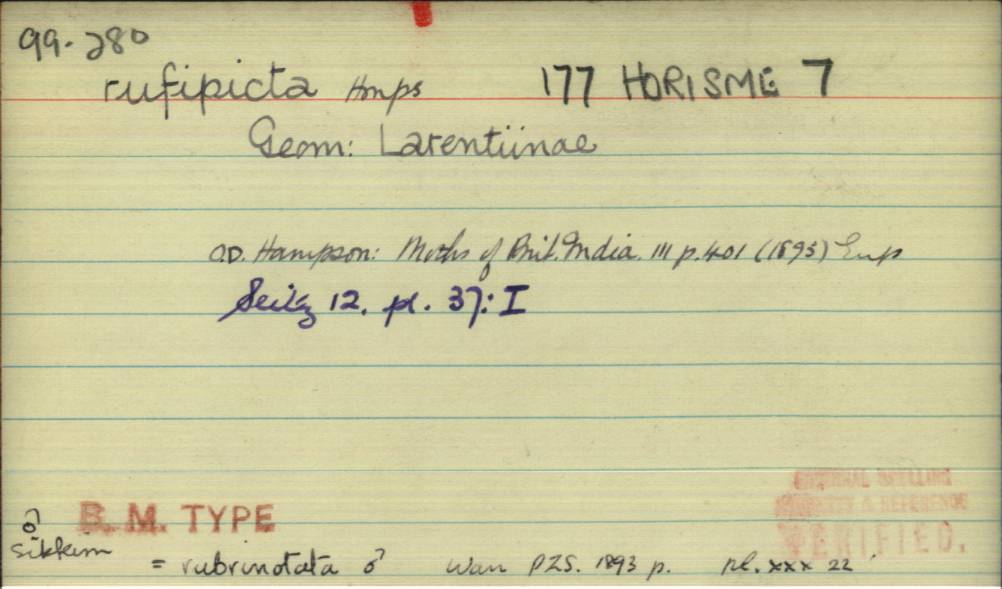 99.280
rufipicta Hmps 177 HORISME 7
Geom: Larentiinae
O.D. Hampson: Moths of Brit. India. III p. 401 (1895) Eup
Seitz 12. pl. 37: I
ORIGINAL SPELLING
& REFERENCE
VERIFIED.
♂ B. M. TYPE
Sikkim
= rubrinotata ♂ Warr PZS. 1893 p. pl. xxx 22